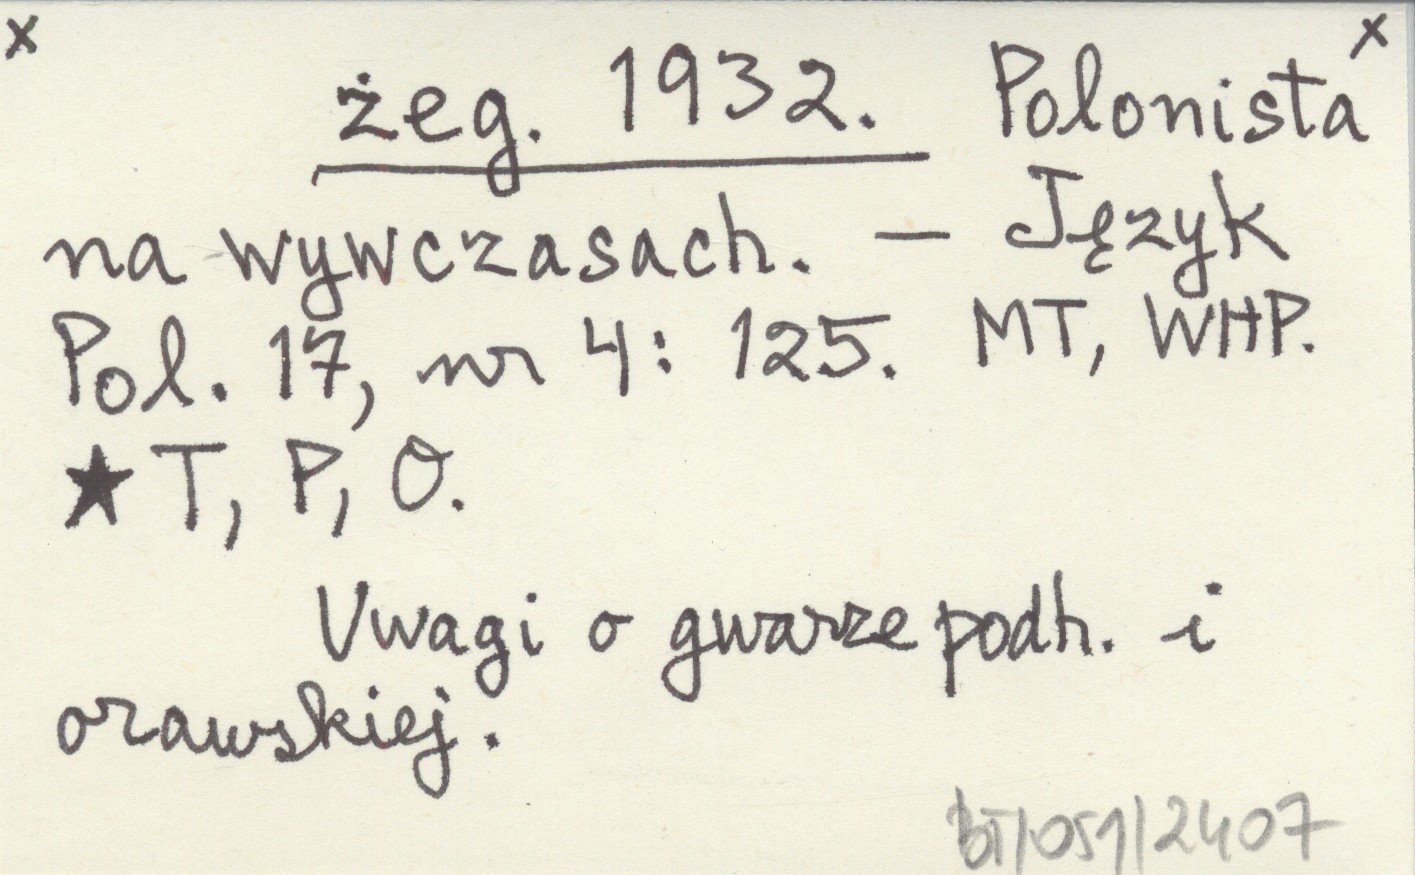 x x
żeg. 1932. Polonista
na wywczasach. — Język
Pol. 17, nr 4: 125. MT, WHP.
★ T, P, O.
Uwagi o gwarze podh. i
orawskiej.
bT/051/2407